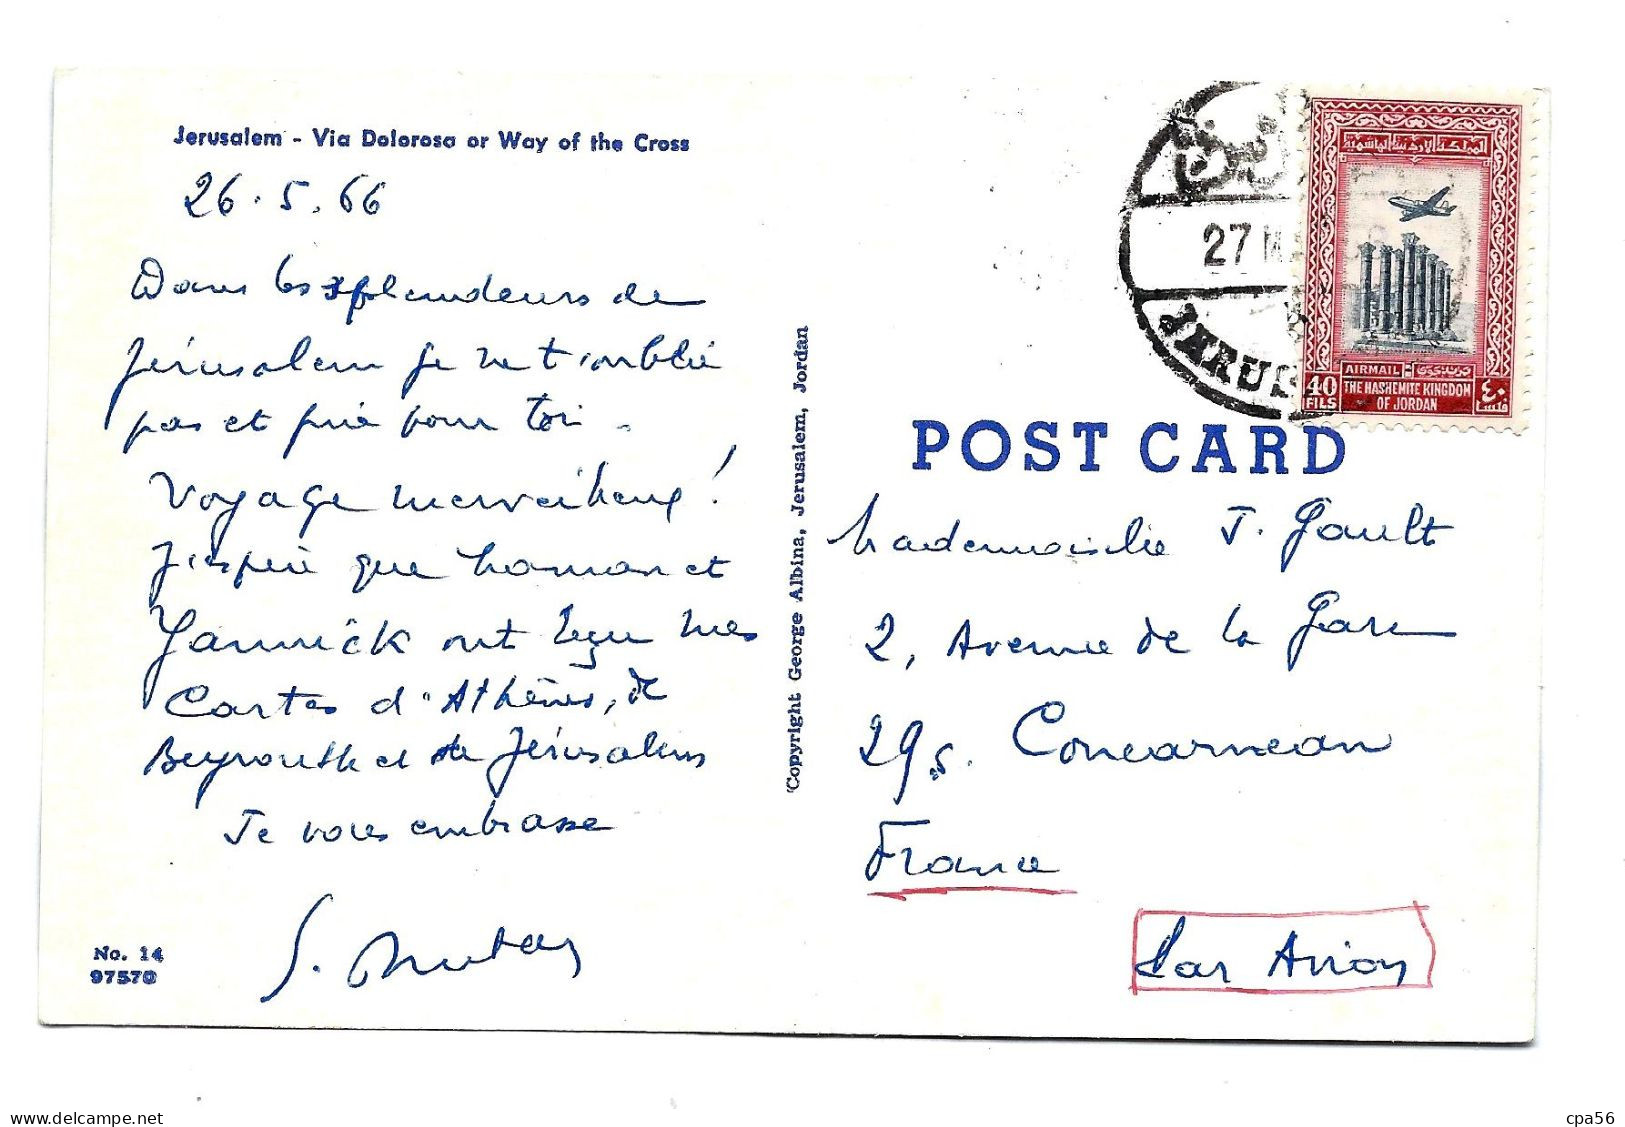 Jerusalem - Via Dolorosa or Way of the Cross
26.5.66
Dans les splendeurs de
Jérusalem je ne t'oublie
pas et prie pour toi.
Voyage merveilleux!
J'espère que maman et
Yannick ont reçu mes
Cartes d'Athènes, de
Beyrouth et de Jérusalem
Je vous embrasse
S.
No. 14
97570
Copyright George Albina, Jerusalem, Jordan
27 MA
JARUS
المملكة الأردنية الهاشمية
AIRMAIL
40 FILS
THE HASHEMITE KINGDOM
OF JORDAN
٤٠
POST CARD
Mademoiselle J. Gault
2, Avenue de la Gare
29s. Concarneau
France
Par Avion
delcampe.net
cpa56